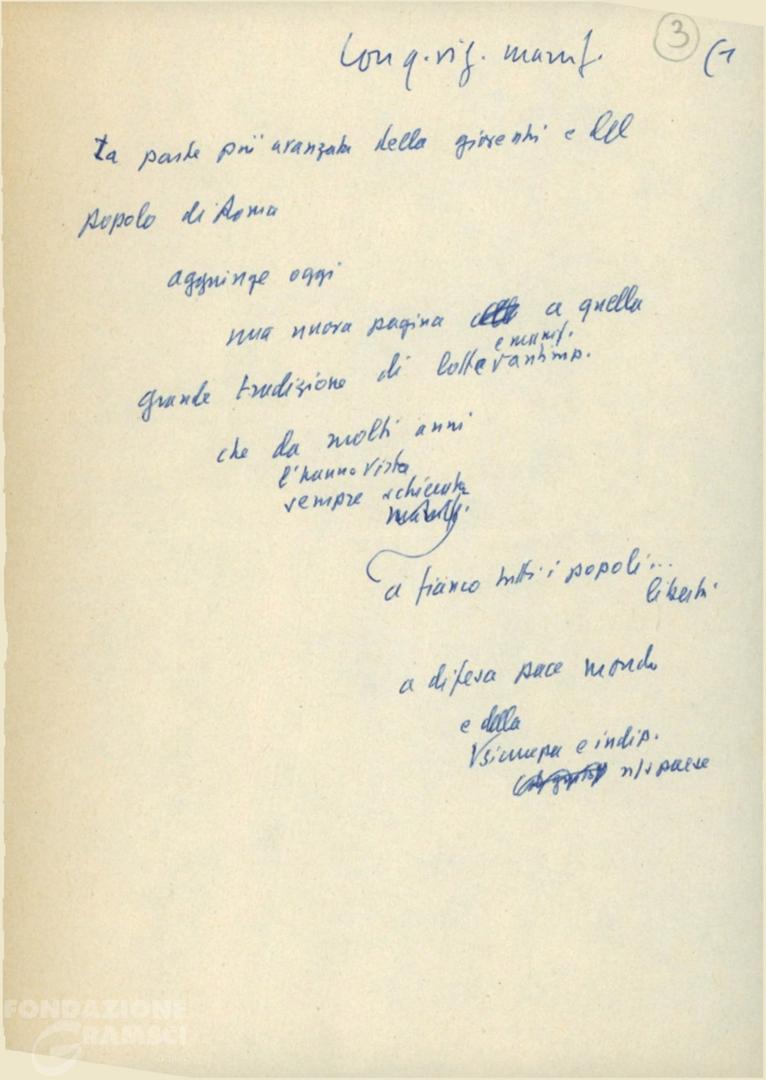 Con q. vig. manif. 3 (1
La parte più avanzata della gioventù e del
popolo di Roma
aggiunge oggi
una nuova pagina a quella
e manif.
grande tradizione di lotte antimp.
che da molti anni
l'hanno vista
sempre schierata
a fianco tutti i popoli...
libertà
a difesa pace mondo
e della
sicurezza e indip.
n/s paese
FONDAZIONE
GRAMSCI